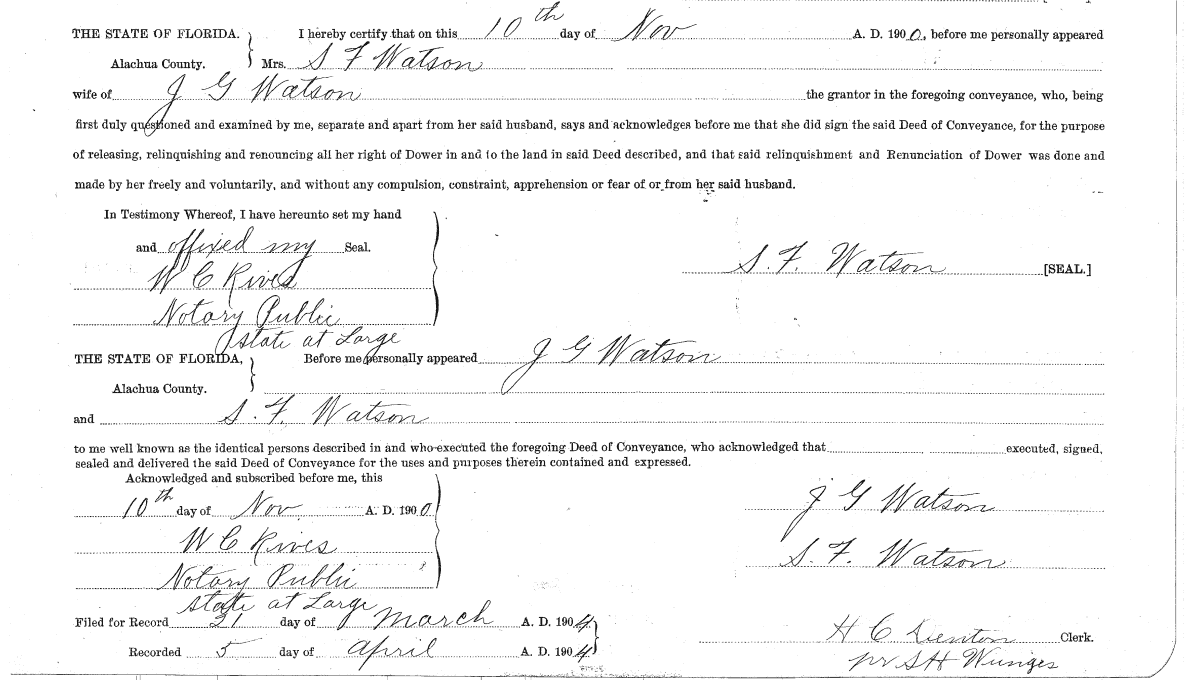 THE STATE OF FLORIDA. I hereby certify that on this 10th day of Nov A. D. 1900, before me personally appeared
Alachua County. Mrs. S F Watson
wife of J G Watson the grantor in the foregoing conveyance, who, being
first duly questioned and examined by me, separate and apart from her said husband, says and acknowledges before me that she did sign the said Deed of Conveyance, for the purpose
of releasing, relinquishing and renouncing all her right of Dower in and to the land in said Deed described, and that said relinquishment and Renunciation of Dower was done and
made by her freely and voluntarily, and without any compulsion, constraint, apprehension or fear of or from her said husband.
In Testimony Whereof, I have hereunto set my hand
and affixed my Seal.
S. F. Watson [SEAL.]
W C Rives
Notary Public
state at Large
THE STATE OF FLORIDA, Before me personally appeared J G Watson
Alachua County.
and S. F. Watson
to me well known as the identical persons described in and who executed the foregoing Deed of Conveyance, who acknowledged that executed, signed,
sealed and delivered the said Deed of Conveyance for the uses and purposes therein contained and expressed.
Acknowledged and subscribed before me, this
10th day of Nov A. D. 1900
J G Watson
W C Rives
S. F. Watson
Notary Public
state at Large
Filed for Record 21 day of March A. D. 1904
H C Denton Clerk.
Recorded 5 day of April A. D. 1904
pr S H